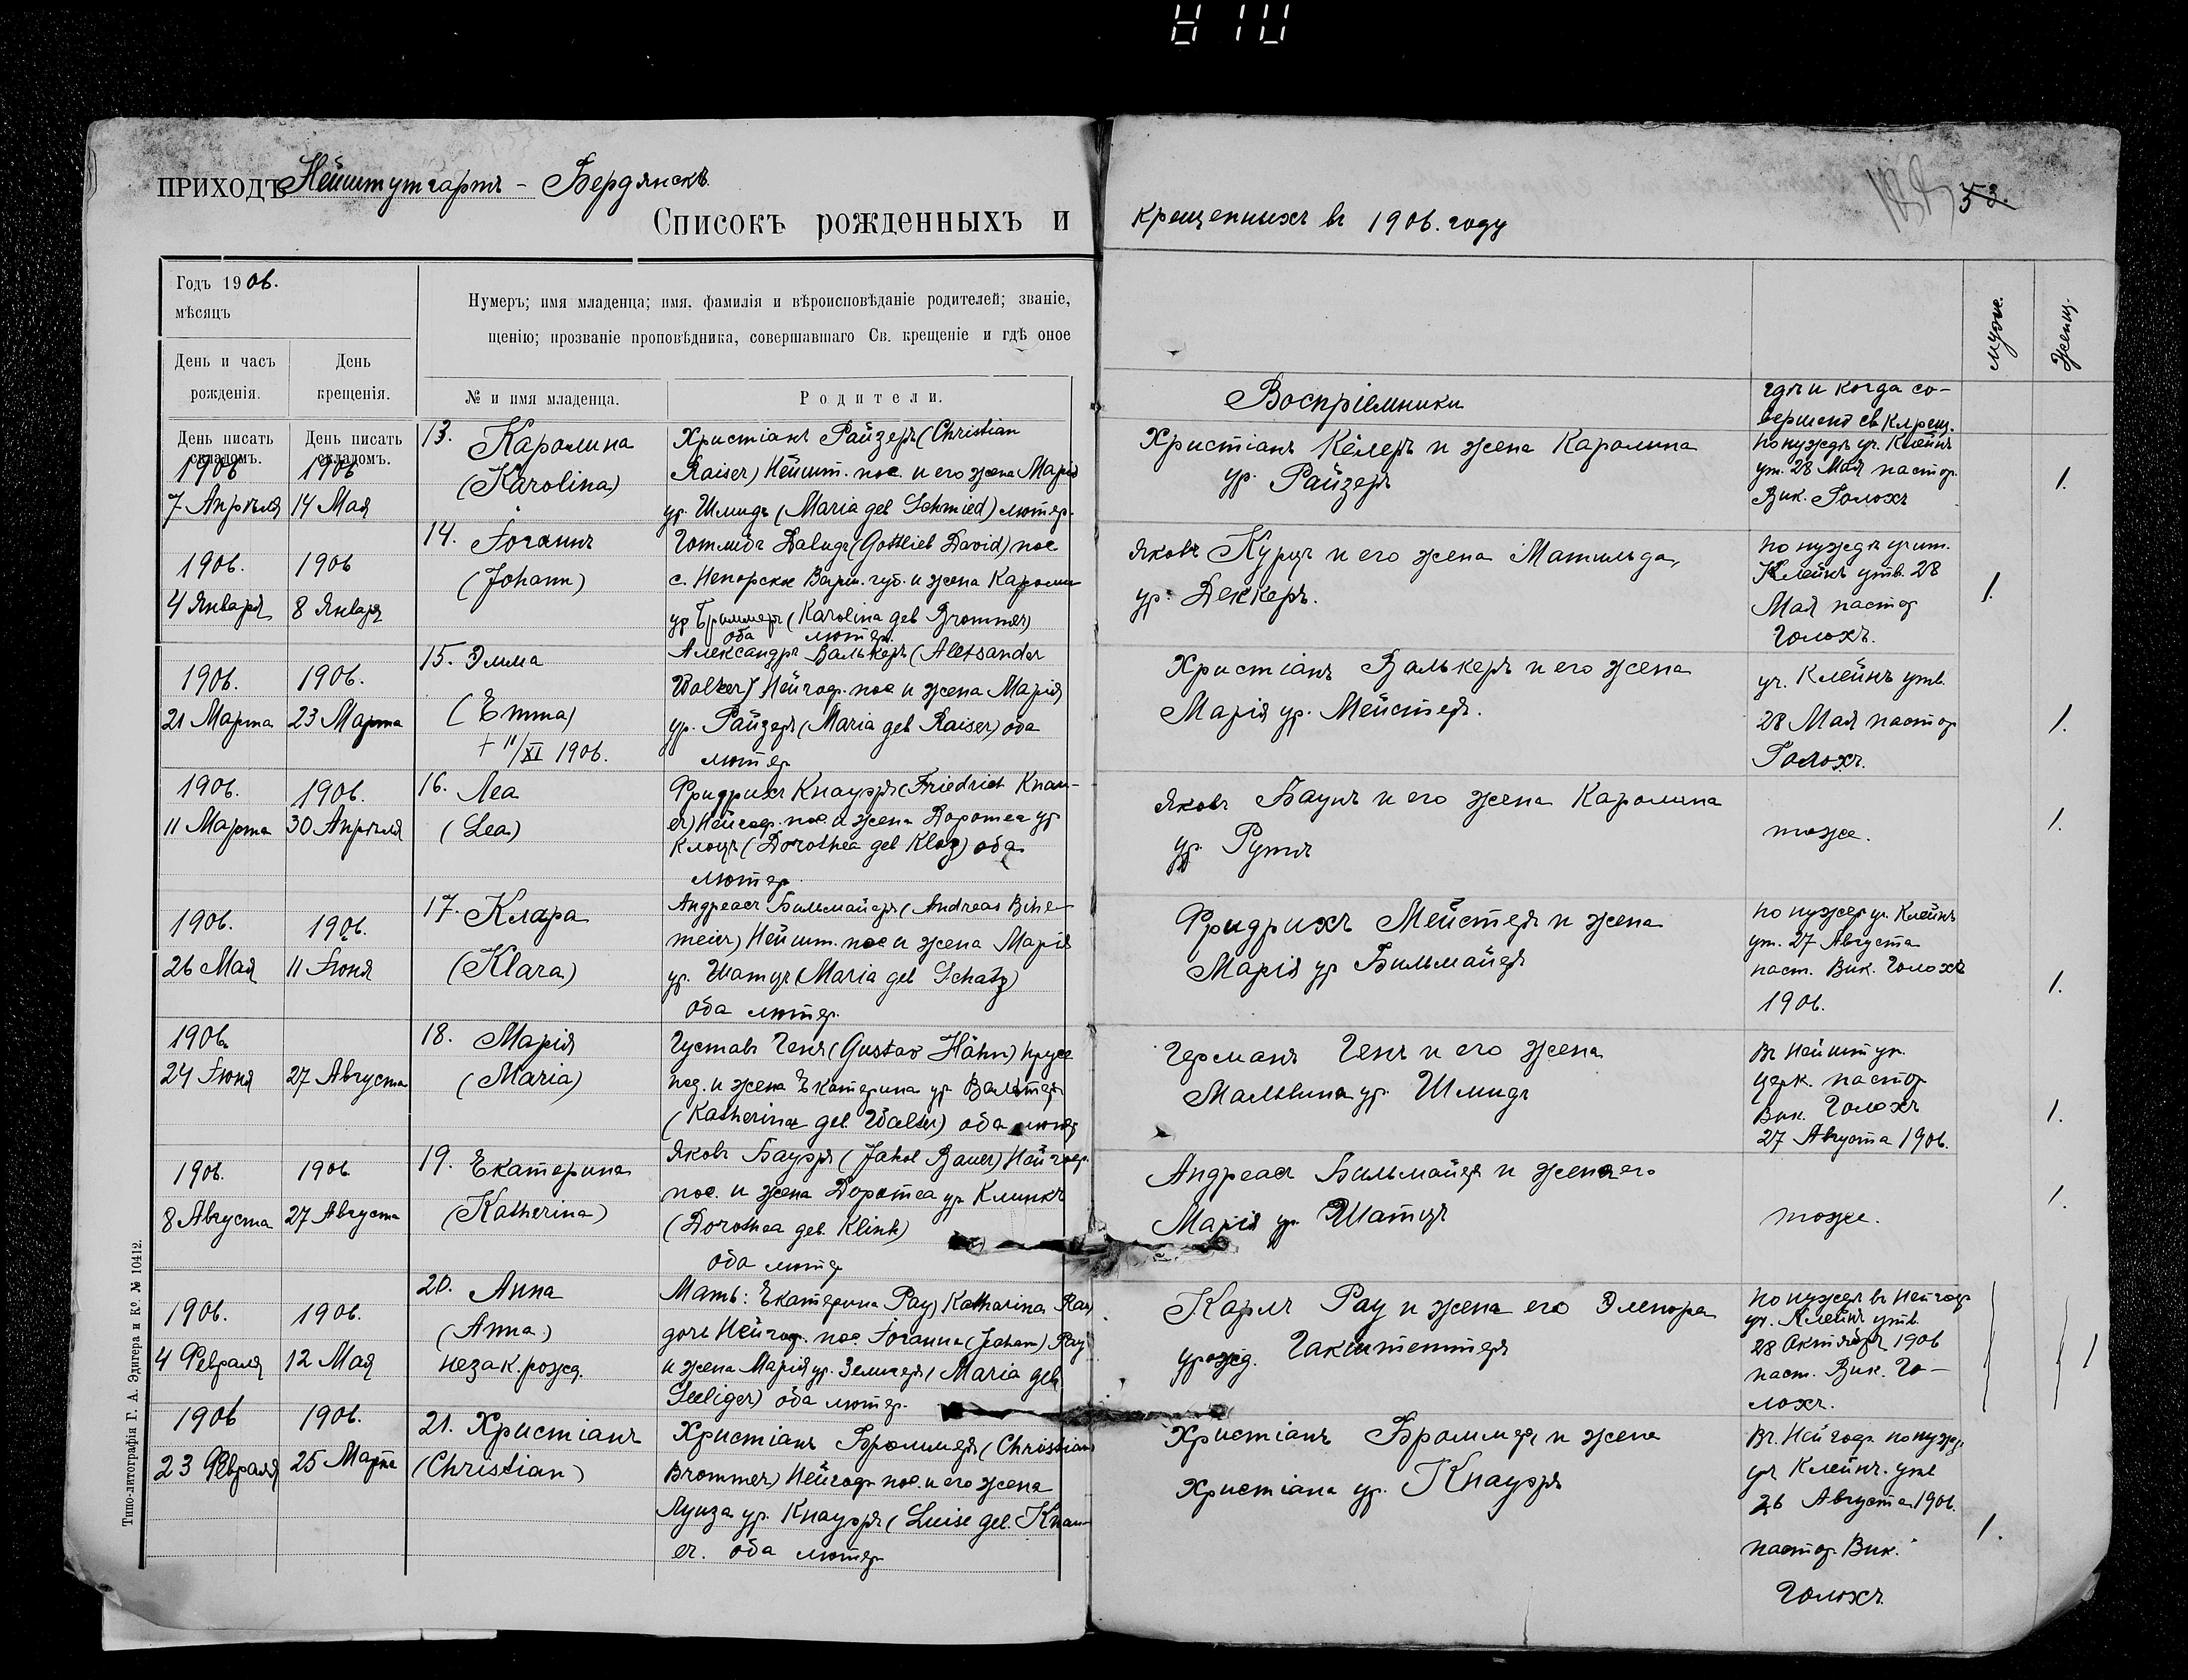 ПРИХОДЪ Нейштутгартъ - Бердянскъ.
Списокъ рожденныхъ и
крещенныхъ въ 1906. году
53.
Годъ 1906.
мѣсяцъ
День и часъ
рожденія.
День
крещенія.
Нумеръ; имя младенца; имя, фамилія и вѣроисповѣданіе родителей; званіе,
щенію; прозваніе проповѣдника, совершавшаго Св. крещеніе и гдѣ оное
№ и имя младенца.
Родители.
Воспріемники
гдѣ и когда со-
вершено св крещ.
мужс.
Женщ.
День писать
складомъ.
День писать
складомъ.
1906
7 Апрѣля
1906
14 Мая
13. Каролина
(Karolina)
Христіанъ Райзеръ (Christian
Raiser) Нейшт. пос. и его жена Марія
ур. Шмидъ (Maria geb Schmied) лютер.
Христіанъ Кёлеръ и жена Каролина
ур. Райзеръ
по нуждѣ уч. Клейнъ
ут. 28 Мая пастор.
Вик. Голохъ
1.
1906.
4 Января
1906
8 Января
14. Іоганнъ
(Johann)
Готлибъ Давидъ (Gottlieb David) пос
с. Непорскк Варш. губ. и жена Кароли
ур Броммеръ (Karolina geb Brommer)
оба лютер.
Яковъ Курцъ и его жена Матильда,
ур. Деккеръ.
по нуждѣ учит.
Клейнъ утв. 28
Мая пастор
Голохъ.
1.
1906.
21 Марта
1906.
23 Марта
15. Эмма
(Emma)
+ 11/XI 1906.
Александръ Валькеръ (Alexsander
Walker) Нейгоф. пос и жена Марія
ур. Райзеръ (Maria geb Raiser) оба
лютер
Христіанъ Валькеръ и его жена
Марія ур. Мейстеръ.
уч. Клейнъ утв.
28 Мая пастор
Голохъ.
1.
1906.
11 Марта
1906.
30 Апрѣля
16. Леа
(Lea)
Фридрихъ Кнауэръ (Friedrich Knau-
er) Нейгоф. пос и жена Доротеа ур
Клоцъ (Dorothea geb Kloz) оба
лютер
Яковъ Баунъ и его жена Каролина
ур. Рутъ
тоже.
1.
1906.
26 Мая
1906.
11 Іюня
17. Клара
(Klara)
Андреасъ Бильмайеръ (Andreas Bihe-
meier) Нейшт. пос и жена Марія
ур. Шатцъ (Maria geb Schatz)
оба лютер.
Фридрихъ Мейстеръ и жена
Марія ур Бильмайеръ
по нужде уч. Клейнъ
ут. 27 Августа
паст. Вик. Голохъ
1906.
1.
1906
24 Іюня
27 Августа
18. Марія
(Maria)
Густавъ Генъ (Gustav Hähn) прусс
под. и жена Екатерина ур Вальтеръ
(Katherina geb Walter) оба лютер
Германъ Генъ и его жена
Мальвина ур. Шмидъ
Въ Нейштут.
церк. пастор
Вик. Голохъ
27 Августа 1906.
1.
1906.
8 Августа
1906
27 Августа
19. Екатерина
(Katherina)
Яковъ Бауэръ (Jakob Bauer) Нейгоф.
пос. и жена Доротеа ур Клинкъ
(Dorothea geb. Klink)
оба лютер
Андреасъ Бильмайеръ и жена его
Марія ур. Шатцъ
тоже.
1.
1906.
4 Февраля
1906.
12 Мая
20. Анна
(Anna)
незак. рожд.
Мать: Екатерина Рау) Katharina Rau)
дочь Нейгоф. пос. Іоганна (Joham) Рау
и жена Марія ур. Зелигеръ (Maria geb
Seeliger) оба лютер.
Карлъ Рау и жена его Эленора
урожд. Гакштеттеръ
по нуждѣ въ Нейгоф
уч. Клейнъ утв.
28 Октября 1906
паст. Вик. Го-
лохъ.
1
1906
23 Февраля
1906.
25 Марта
21. Христіанъ
(Christian)
Христіанъ Броммеръ (Christian
Brommer) Нейгоф пос. и его жена
Луиза ур. Кнауэръ (Luise geb. Knau-
er. оба лютер
Христіанъ Броммеръ и жена
Христіана ур. Кнауэръ
Въ Нейгоф по нужд.
уч Клейнъ. утв
26 Августа 1906.
пастор Вик.
Голохъ.
1.
Типо-литографія Г. А. Эдигера и Ко. № 10412.